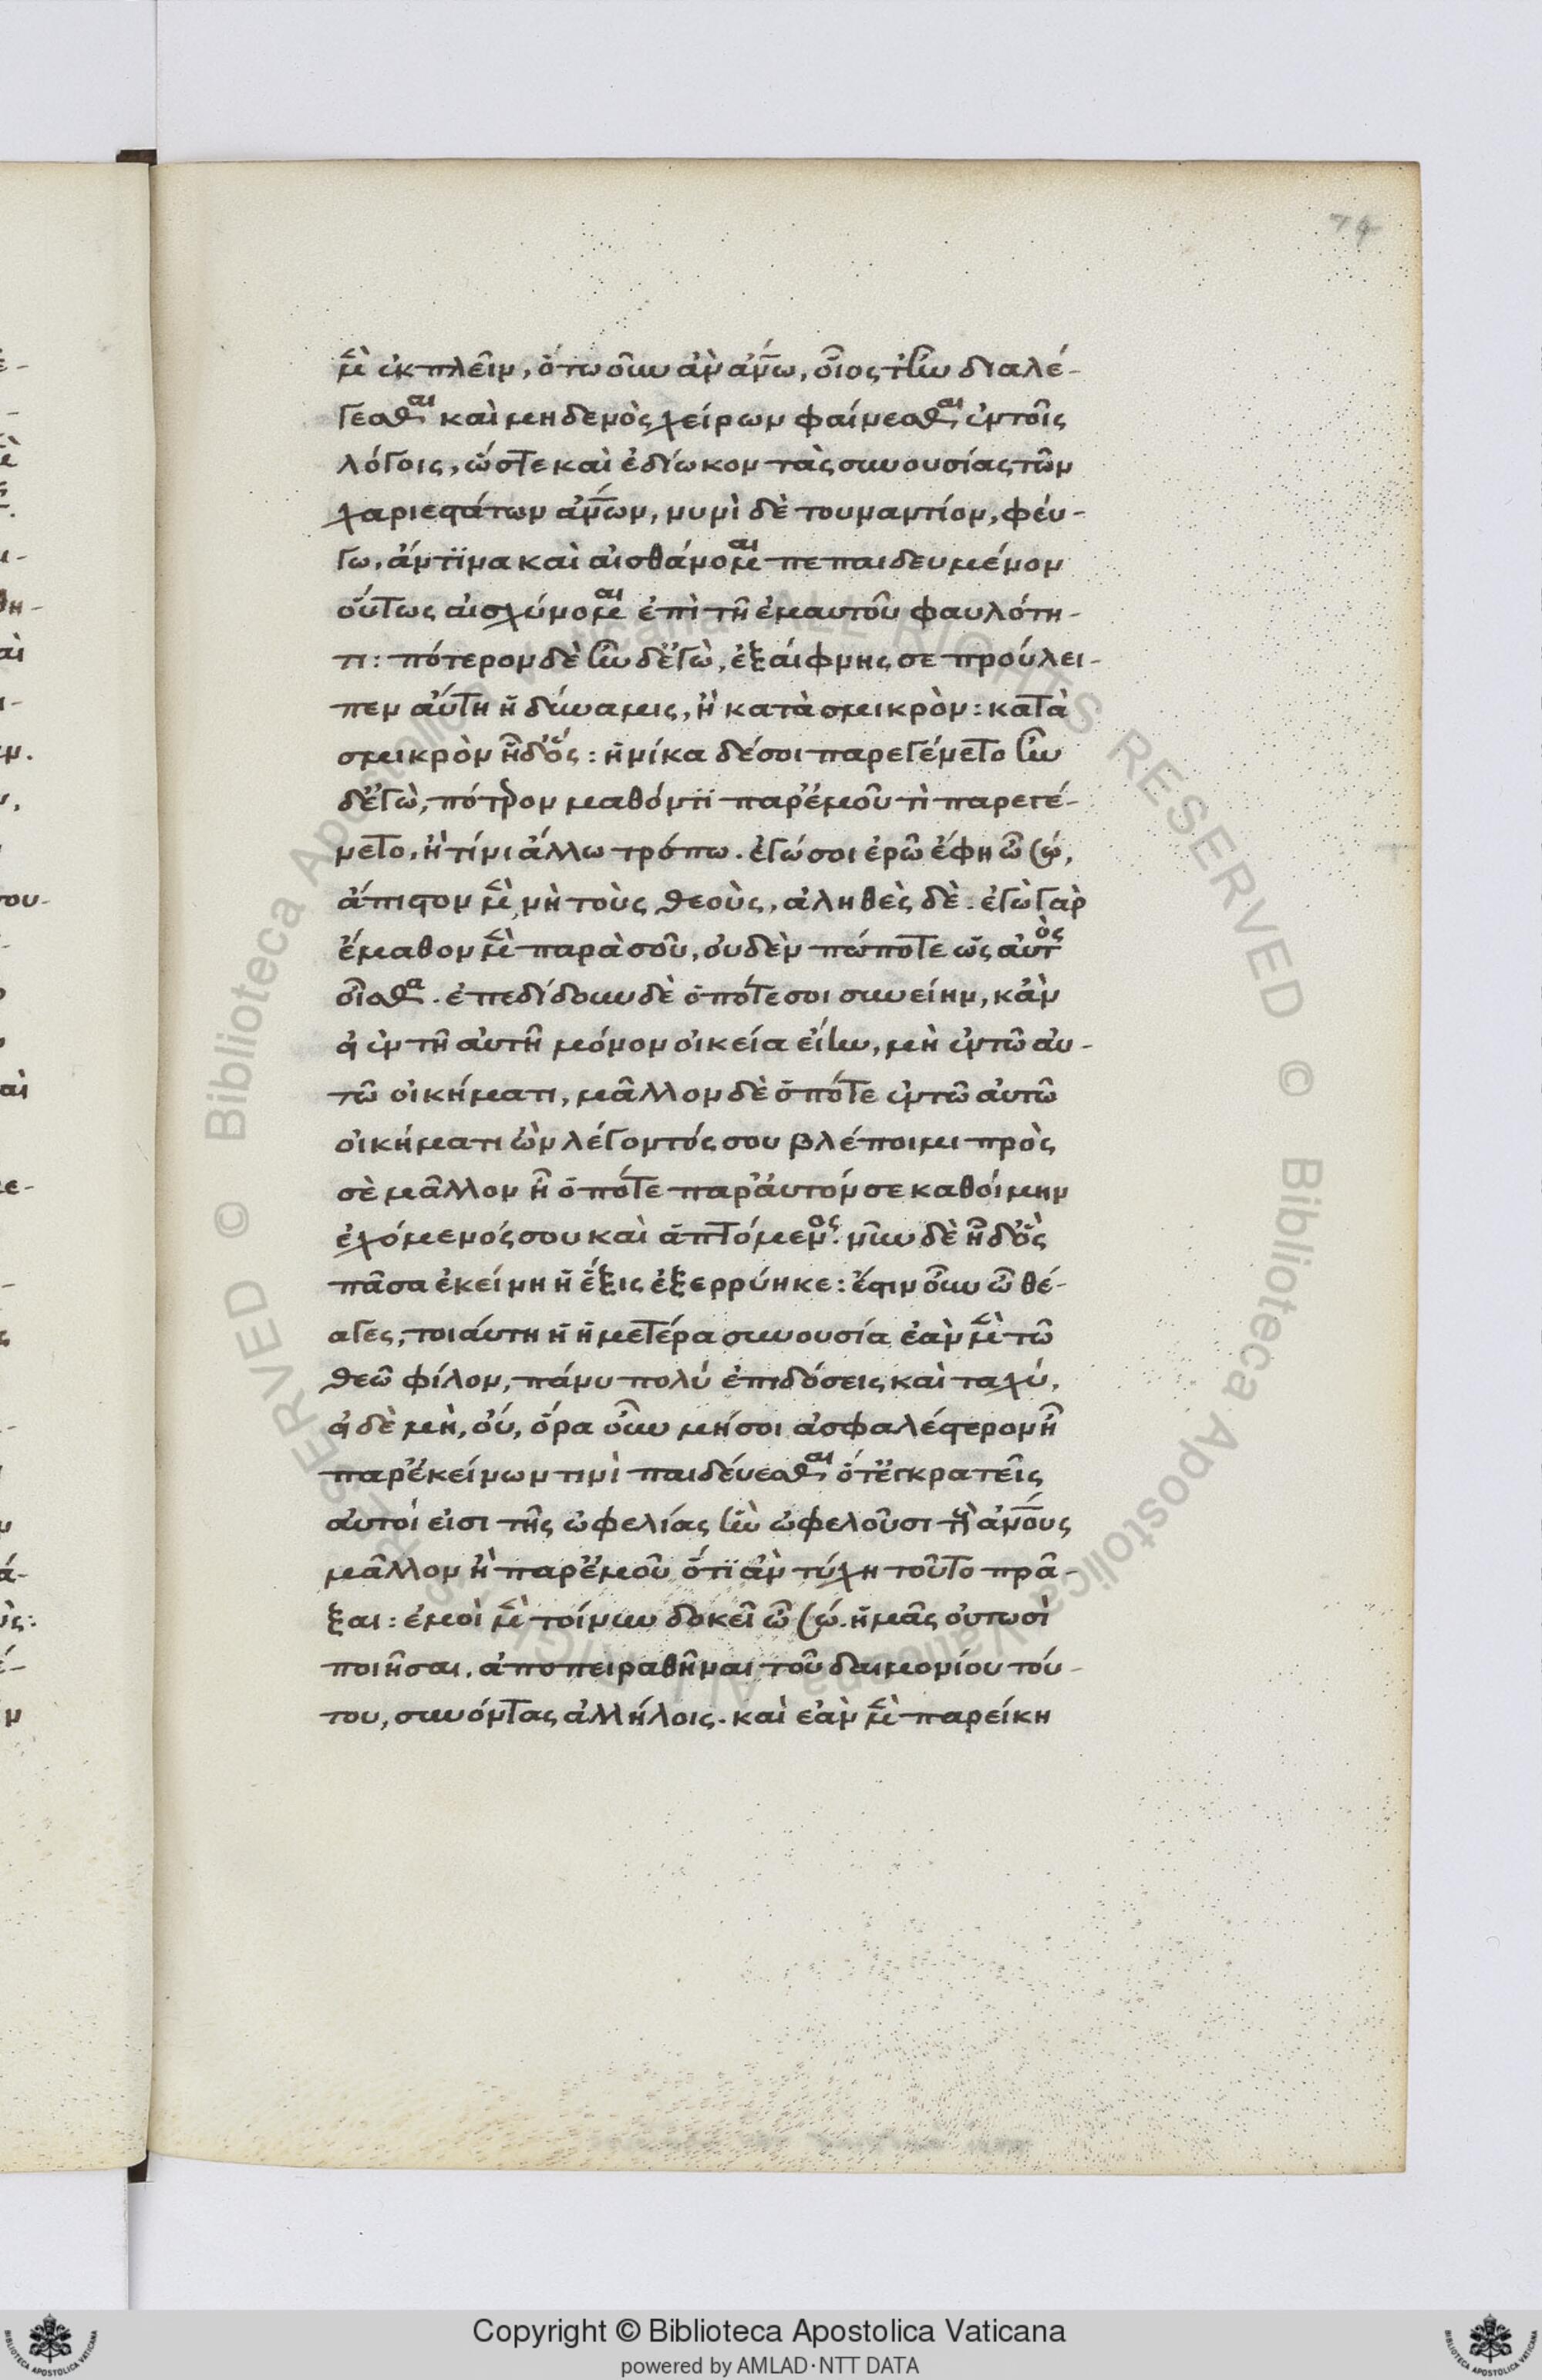 74
μὲν ἐκπλεῖν, ὁτωοῦν ἀν ἀνω, οἷος τ' ἦν διαλέ-
γεσθαι καὶ μηδενὸς χείρων φαίνεσθαι ἐν τοῖς
λόγοις, ὥστε καὶ ἐδίωκον τὰς συνουσίας τῶν
χαριεστάτων ἀνων, νυνὶ δὲ τουναντίον, φέυ-
γω, ἄντϊνα καὶ αἰσθάνομαι πεπαιδευμένον
οὕτως αἰσχύνομαι ἐπὶ τῆ ἐμαυτοῦ φαυλότη-
τι: πότερον δὲ ἦν δ' ἐγὼ, ἐξαίφνης σε προύλει-
πεν αὕτη ἡ δύναμις, ἢ κατὰ σμικρὸν: κατὰ
σμικρὸν ἦ δ' ὅς: ἡνίκα δέ σοι παρεγένετο ἦν
δ' ἐγὼ, πότερον μαθόντϊ παρ' ἐμοῦ τὶ παρεγέ-
νετο, ἢ τίνι ἄλλω τρόπω. ἐγώ σοι ἐρῶ ἔφη ὦ σώ,
ἄπιστον μὲν νὴ τοὺς θεοὺς, ἀληθὲς δὲ. ἐγὼ γὰρ
ἔμαθον μὲν παρὰ σοῦ, ουδὲν πώποτε ὡς αὐτὸς
οἶσθα. ἐπεδίδουν δὲ ὁπότε σοι συνείην, κἀν
εἰ ἐν τῆ αὐτῆ μόνον οἰκεία εἴην, μὴ ἐν τῶ αυ-
τῶ οἰκήματι, μᾶλλον δὲ ὁπότε ἐν τῶ αὐτῶ
οἰκήματι ὢν λέγοντός σου βλέποιμι πρὸς
σὲ μᾶλλον ἢ ὁπότε παρ' ἀυτόν σε καθοίμην
ἐχόμενός σου καὶ ἁπτόμενος. νῦν δὲ ἦ δ' ὃς
πᾶσα ἐκείνη ἡ ἕξις ἐξερρύηκε: ἔστιν οὖν ὦ θέ-
αγες, τοιάυτη ἡ ἡμετέρα συνουσία ἐὰν μὲν τῶ
θεῶ φίλον, πάνυ πολύ ἐπιδόσεις καὶ ταχύ,
εἰ δὲ μὴ, οὔ, ὅρα οὖν μή σοι ἀσφαλέστερον ἦ
παρ' ἐκείνων τινὶ παιδέυεσθαι ὅτ' ἐγκρατεῖς
αὐτοί εἰσι τῆς ὠφελίας ἣν ὠφελοῦσι τοὺς ἀνους
μᾶλλον ἢ παρ' ἐμοῦ ὅτϊ ἀν τύχη τοῦτο πρᾶ-
ξαι: ἐμοὶ μὲν τοίνυν δοκεῖ ὦ σώ. ἡμᾶς ουτωσὶ
ποιῆσαι, ἀποπειραθῆναι τοῦ δαιμονίου τού-
του, συνόντας ἀλλήλοις. καὶ ἐὰν μὲν παρείκη
Copyright © Biblioteca Apostolica Vaticana
powered by AMLAD·NTT DATA